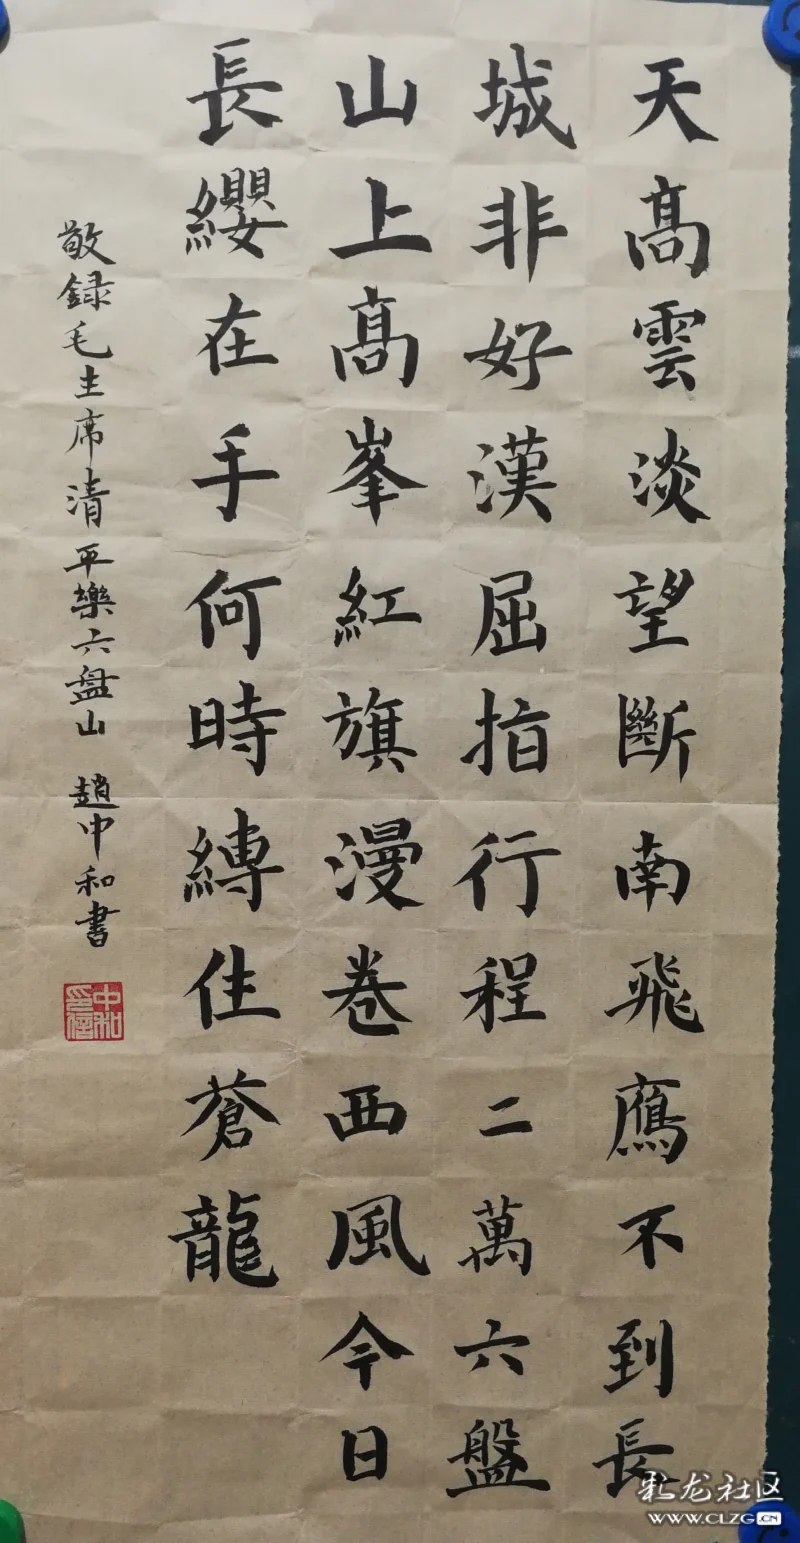 天高雲淡望斷南飛鷹不到長
城非好漢屈指行程二萬六盤
山上高峯紅旗漫卷西風今日
長纓在手何時縛住蒼龍
敬録毛主席清平樂六盤山 趙中和書
中和印信
龙社区
WWW.CLZG.CN